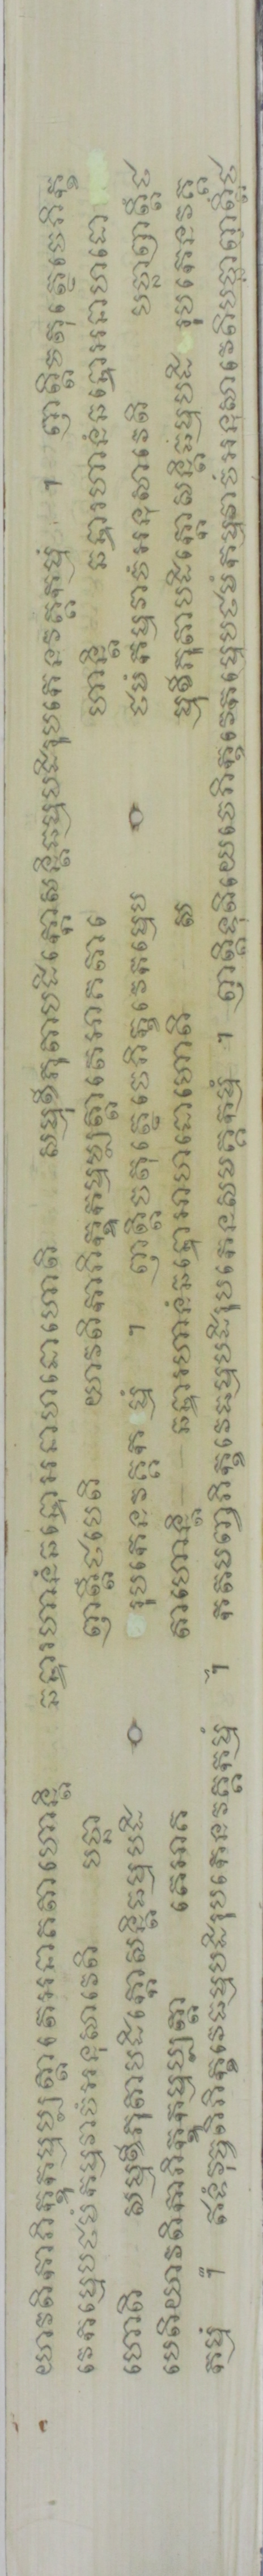 យាវតិកាភិក្ខុកម្មប្បត្តាតេអនាគតាហោន្តិ ឆន្ទារហានំឆន្ទោអនាហដោហោតិ សម្មុខីភូតាបដិក្កោសន្តិធម្មបដិរូបកេនវគ្គកម្មំ ។ ញាត្តិចតុត្ថេចេភិក្ខ
វេកម្មេបឋមំកម្មវាចំអនុសាវេតិ បច្ឆា ញត្តឹថបេតិ យាវតិកាភិក្ខុកម្មប្បត្តាតេអាគតាហោ ហោន្តិ ឆន្ទារហានំឆន្ទោអនាហដោ
ហោតិ សម្មុខីភូតាបដិក្កោសន្តិធម្មបដិ រូបកេនវគ្គកម្មំ ។ ញាត្តិចតុត្ថេចេភិក្ខវេកម្មេប ឋមំកម្មវាចំអនុសាវេតិ បច្ឆាញាត្តឹថ
បេតិយាវតិកាភិក្ខុកម្មប្បត្តា តេអាគ តាហោន្តិ ឆន្ទារហានំឆន្ទោអាហដោហោតិ ស ម្មុខីភូតាបដិក្កោសន្តិធម្មបដិ រូបកេនវគ្គ
កម្មំ ។ ឥទំវុច្ចតិភិក្ខវេធម្មបដិរូបកេនវគ្គកម្មំ ។ កតមញ្ចភិក្ខវេធម្មបដិរូបកេនសមគ្គកម្មំ ។ ញាត្តិទុតិយេចេភិក្ខវេកម្មេបឋមំកម្មវាចំអនុសាវេតិបច្ឆាញាត្តឹថ